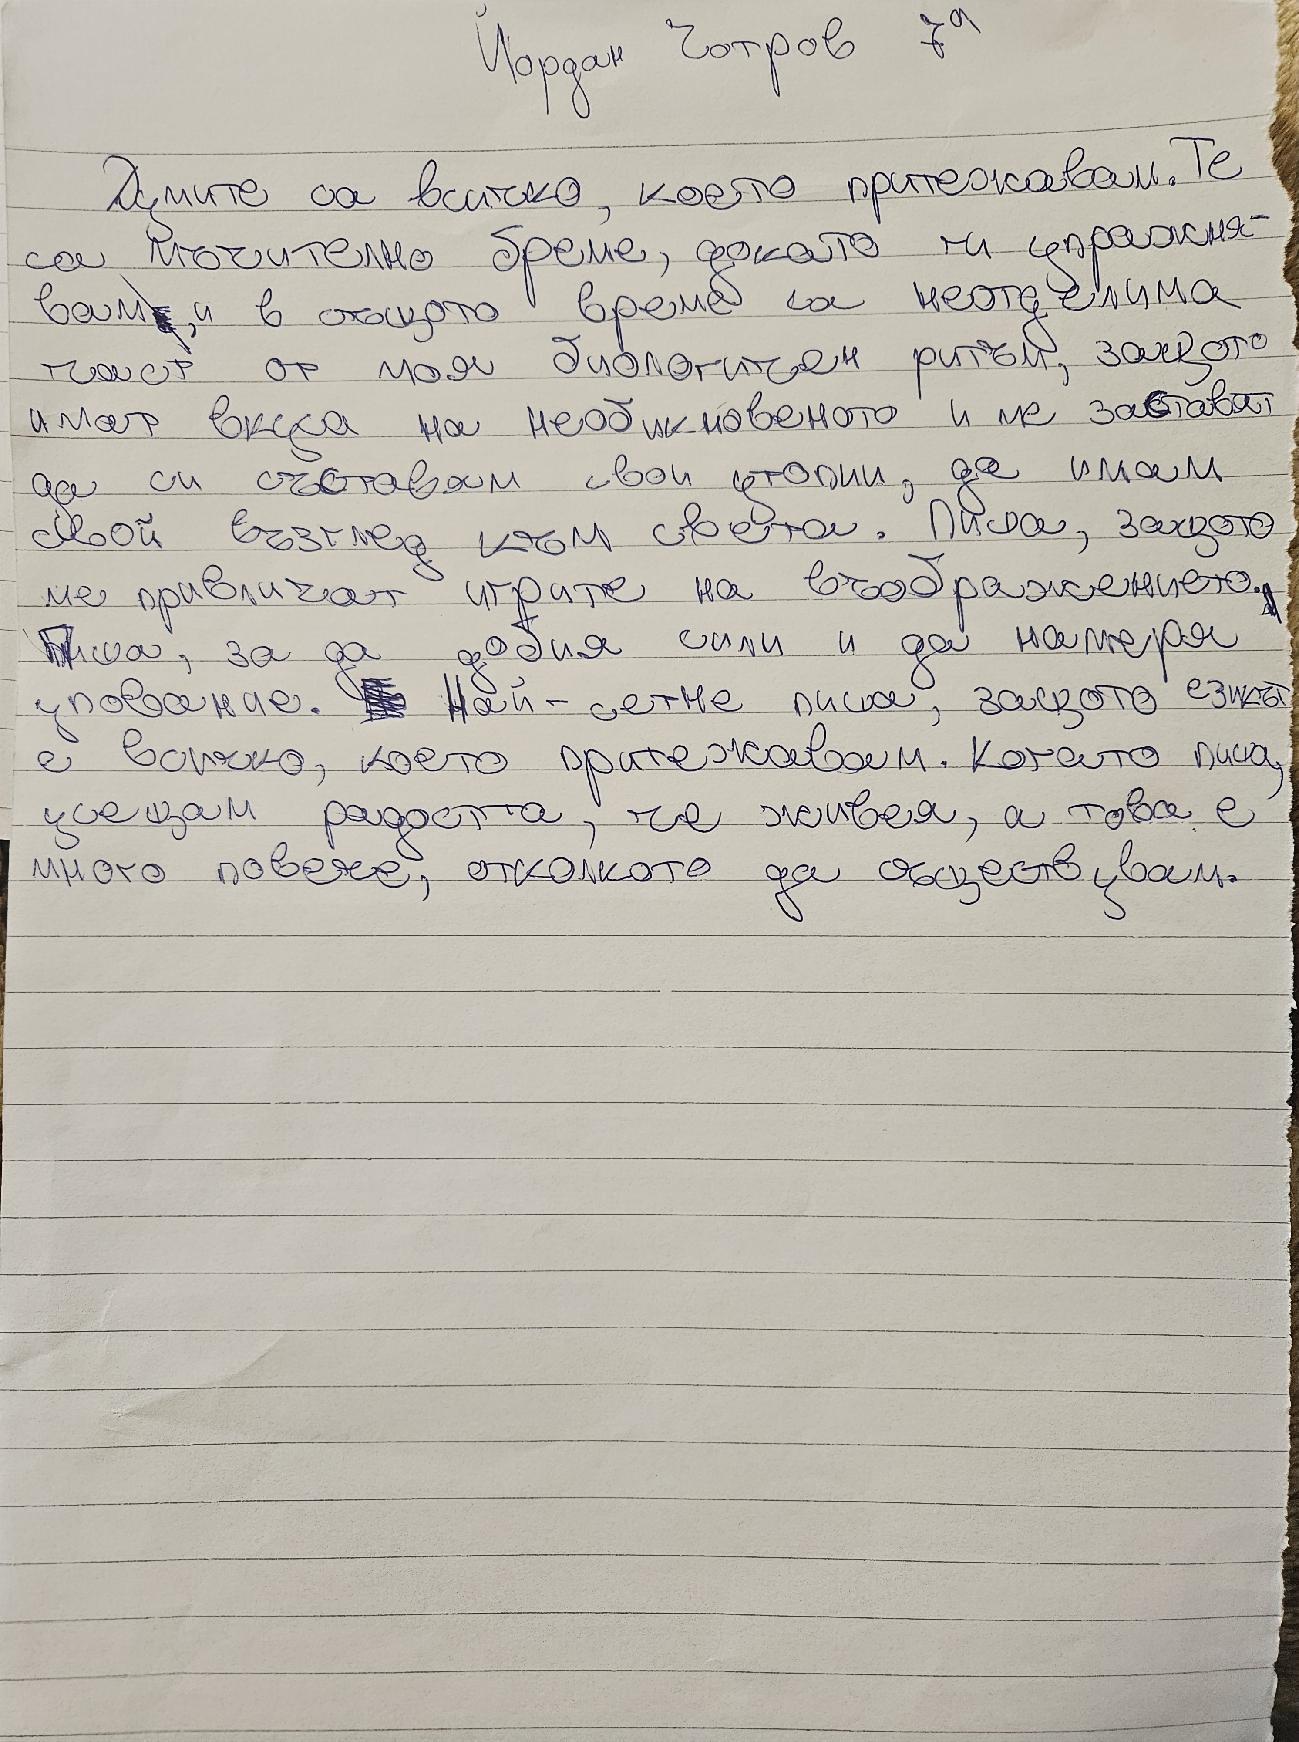 Йордан Чотров 7а
Думите са всичко, което притежавам. Те
са мъчително бреме, докато ги упражня-
вам, и в същото време са неотделима
част от моя биологичен ритъм, защото
имат вкуса на необикновеното и ме заставят
да си съставям свои утопии, да имам
свой възглед към света. Пиша, защото
ме привличат игрите на въображението.
Пиша, за да добия сили и да намеря
упование. Най-сетне пиша, защото езикът
е всичко, което притежавам. Когато пиша,
усещам радостта, че живея, а това е
много повече, отколкото да съществувам.